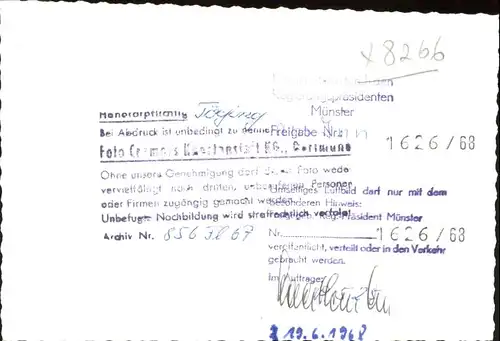 x 8266
Regierungspräsidenten
Münster
Honorarpflichtig
Bei Abdruck ist unbedingt zu nennen
Freigabe Nr.
1626/68
Foto Cramers Kunstanstalt KG., Dortmund
Ohne unsere Genehmigung darf dieses Foto weder
vervielfältigt noch dritten, unbefugten Personen
oder Firmen zugängig gemacht werden.
Unbefugte Nachbildung wird strafrechtlich verfolgt
Archiv Nr.
Luftbild darf nur mit dem
besonderen Hinweis:
Reg. Präsident Münster
Nr. 1626/68
veröffentlicht, verteilt oder in den Verkehr
gebracht werden.
Im Auftrage:
19.6.1968